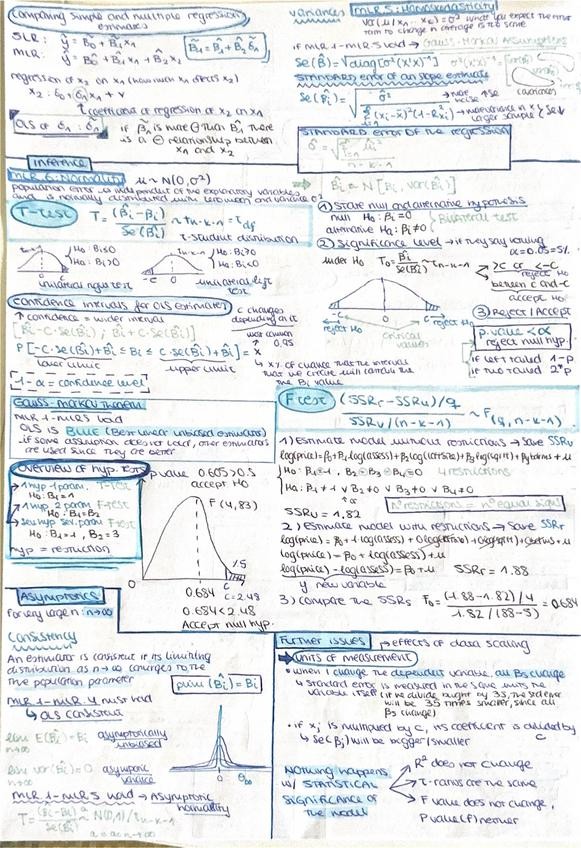 Comparing simple and multiple regression
estimates
SLR: ŷ = B̃0 + B̃1x1
MLR: ŷ = B̂0 + B̂1x1 + B̂2x2
B̃1 = B̂1 + B̂2 δ̃1
regression of x2 on x1 (how much x1 affects x2)
x2 = δ0 + δ1x1 + v
coefficient of regression of x2 on x1
OLS of δ1 : δ̃1
if B̃1 is more ⊕ than B̂1, there
is a ⊕ relationship between
x1 and x2
variances MLR 5: Homoskedasticity
Var(u|x1 ... xk) = σ²
if MLR 1-MLR 5 hold → Gauss-Markov Assumptions
covariances
STANDARD error of an slope estimate
larger sample
STANDARD ERROR OF the regression
n-k-1
Inference
MLR 6: Normality u ~ N(0,σ²)
population error is independent of the explanatory variables
and is normally distributed with zero mean and variance σ²
⇒ B̂i ~ N[Bi, Var(B̂i)]
T-test T = (B̂i - Bi) / Se(B̂i) ~ tn-k-1 = tdf
t-student distribution
H0: Bi≤0
H0: Bi≥0
H0: Bi<0
unilateral right test
unilateral left
test
① State null and alternative hypothesis
null H0: Bi = 0
alternative Ha: Bi ≠ 0
Bilateral test
② Significance level → if they say nothing
α = 0.05 = 5%
under H0 T0 = B̂i / Se(B̂i) ~ tn-k-1
>c or <-c
reject H0
between c and -c
accept H0
reject H0
-c
0
c
reject H0
critical
values
③ Reject | Accept
p.value < α
reject null hyp.
if left tailed 1-p
if two tailed 2*p
Confidence intervals for OLS estimates
↑ confidence = wider interval
c changes
depending on α
[B̂i - c·Se(B̂i), B̂i + c·Se(B̂i)]
most common
0,95
P[-c·Se(B̂i)+B̂i ≤ Bi ≤ c·Se(B̂i)+B̂i] = x
lower limit
upper limit
↳ x% of chance that the interval
that we create will contain the
the Bi value
1 - α = confidence level
Gauss-Markov Theorem
MLR 1-MLR5 hold
OLS is BLUE (Best linear unbiased estimators)
if some assumption does not hold, other estimators
are used since they are better
Overview of hyp. tests
1 hyp 1 param. T-test
H0: B1 = 1
1 hyp 2 param F-test
H0: B1 = B2
sev hyp sev. param F-test
H0: B1 = 1, B2 = 3
hyp = restriction
p value 0.605 > 0.5
accept H0
F(4,83)
0
0.684
c
c = 2.48
0.684 < 2.48
Accept null hyp.
F test (SSRr - SSRu)/q / SSRu/(n-k-1) ~ F(q, n-k-1)
1) Estimate model without restrictions → Save SSRu
log(price) = β0 + β1log(assess) + β2log(lotsize) + β3log(sqrft) + β4bdrms + u
H0: B1=1, B2=B3=B4=0 4 restrictions
Ha: B1≠1 ∨ B2≠0 ∨ B3≠0 ∨ B4≠0
nº restrictions = nº equal signs
SSRu = 1,82
2) Estimate model with restrictions → Save SSRr
log(price) = β0 + log(assess) + u
log(price) - log(assess) = β0 + u
y new variable
SSRr = 1.88
3) compare the SSRs F0 = (1.88-1.82)/4 / 1.82/(88-5) = 0.684
Asymptotics
For any large n: n→∞
Consistency
An estimator is consistent if its limiting
distribution as n→∞ converges to the
true population parameter
plim(B̂i) = Bi
MLR 1-MLR 4 must hold
↳ OLS consistent
lim E(B̂i) = Bi asymptotically
unbiased
n→∞
lim Var(B̂i) = 0 asymptotic
variance
n→∞
MLR 1-MLR5 hold → Asymptotic
normality
T = (B̂i-Bi) / Se(B̂i) ~ N(0,1) / tn-k-1
0
Further issues → effects of data scaling
Units of measurement
• when I change the dependent variable, all Bs change
↳ Standard error is measured in the same units the
variable itself (if we divide bwght by 35, the std error
will be 35 times smaller, since all
Bs change)
• if xj is multiplied by c, its coefficient is divided by
c
↳ Se(βj) will be bigger/smaller
Nothing happens
w/ STATISTICAL
SIGNIFICANCE of
the model
R² does not change
t-ratios are the same
F value does not change,
P value (F) neither